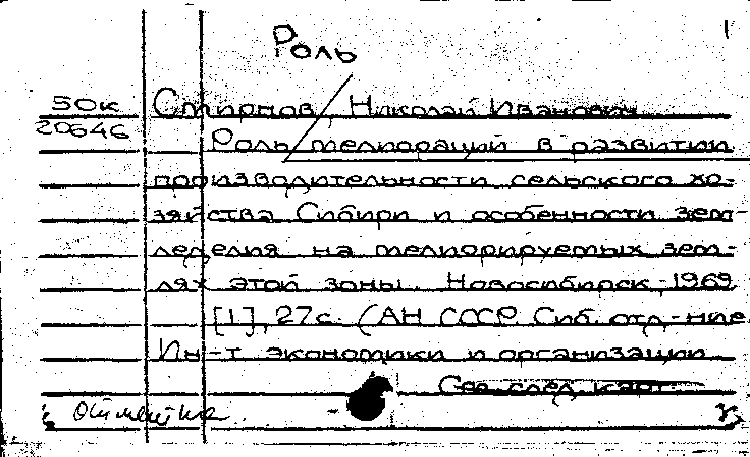 1
Роль
50к
20646
Смирнов, Николай Иванович
Роль мелиораций в развитии
производительности сельского хо-
зяйства Сибири и особенности зем-
леделия на мелиорируемых зем-
лях этой зоны. Новосибирск, 1969
[1], 27с. (АН СССР. Сиб. отд-ние
Ин-т экономики и организации
См. след. карт.